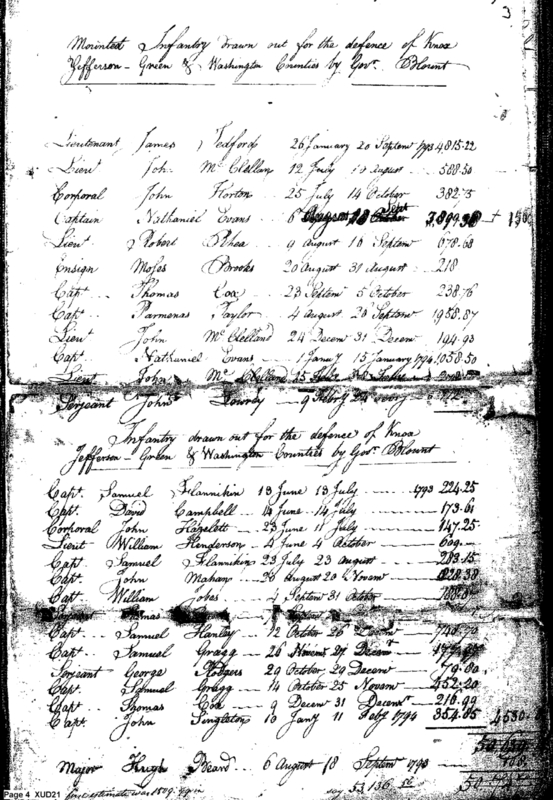 3
Mounted Infantry drawn out for the defence of Knox
Jefferson - Green & Washington Counties by Govr. Blount
Lieutenant James Tedford 26 January 20 Septem 1793 4,815.22
Lieut John McClellan 12 July 10 August 588.50
Corporal John Horton 25 July 14 October 382.75
Captain Nathaniel Evans 6
Lieut Robert Rhea 9 August 16 Septem 678.68
Ensign Moses Brooks 20 August 31 August 218
Capt Thomas Cox 23 Septem 5 October 238.76
Capt Parmenas Taylor 4 August 20 Septem 1958.87
Lieut John McClelland 24 Decem 31 Decem 194.93
Capt Nathaniel Evans 1 Jany 15 January 1794 1058.50
Lieut John McClelland
Sergeant John Lowry 9
Infantry drawn out for the defence of Knox
Jefferson - Green & Washington Counties by Govr. Blount
Capt. Samuel Flannikin 13 June 13 July 1793 224.25
Capt. David Campbell 14 June - 14 July 173.61
Corporal John Hazelett 23 June 11 July 147.25
Lieut William Henderson 4 June 4 October 609
Capt Samuel Flannikin 23 July 23 August 283.15
Capt John Mahan 20 August 20 Novem
Capt William Jobes 4 Septem 31 October
Thomas
Capt Samuel Hanley 12 October 26
Capt Samuel Gragg 26 Novem 27 Decem
Sergeant George Hodgers 29 October 29 Decem 79.80
Capt. Samuel Gragg 14 October 25 Novem 452.20
Capt Thomas Cox 9 Decem 31 Decem 216.99
Capt John Singleton 10 Jany 11 Feby 1794 354.05 4530
Major Hugh Beard 6 August 18 Septem 1793
say 53,136
Page 4 XUD21